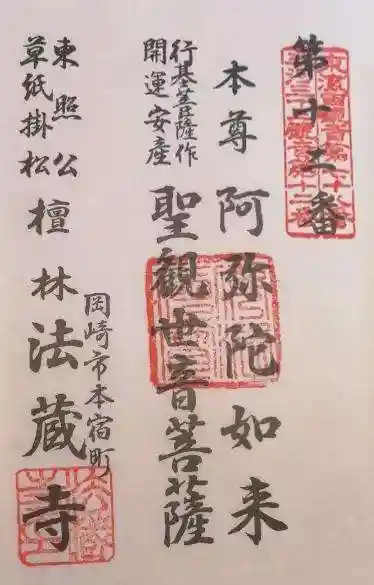 第十二番
本尊 阿弥陀如来
行基菩薩作
開運安産
聖観世音菩薩
東照公
草紙掛松
檀林法蔵寺
岡崎市本宿町